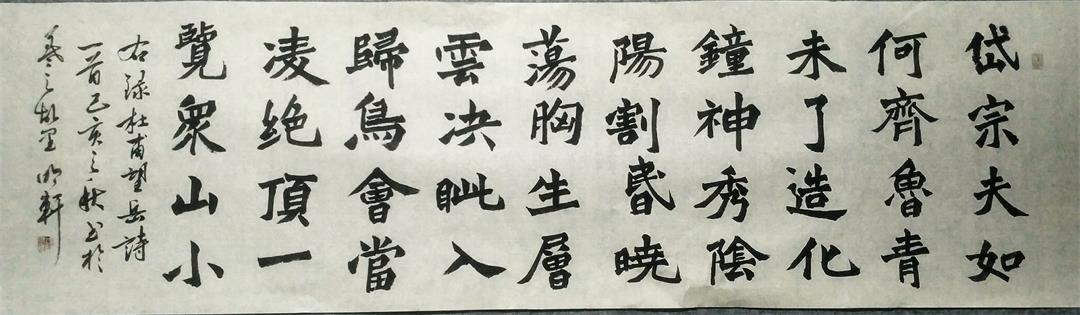 岱宗夫如
何齊魯青
未了造化
鐘神秀陰
陽割昏曉
蕩胸生層
雲决眦入
歸鳥會當
凌绝頂一
覽衆山小
右録杜甫望岳詩
一首己亥之秋书於